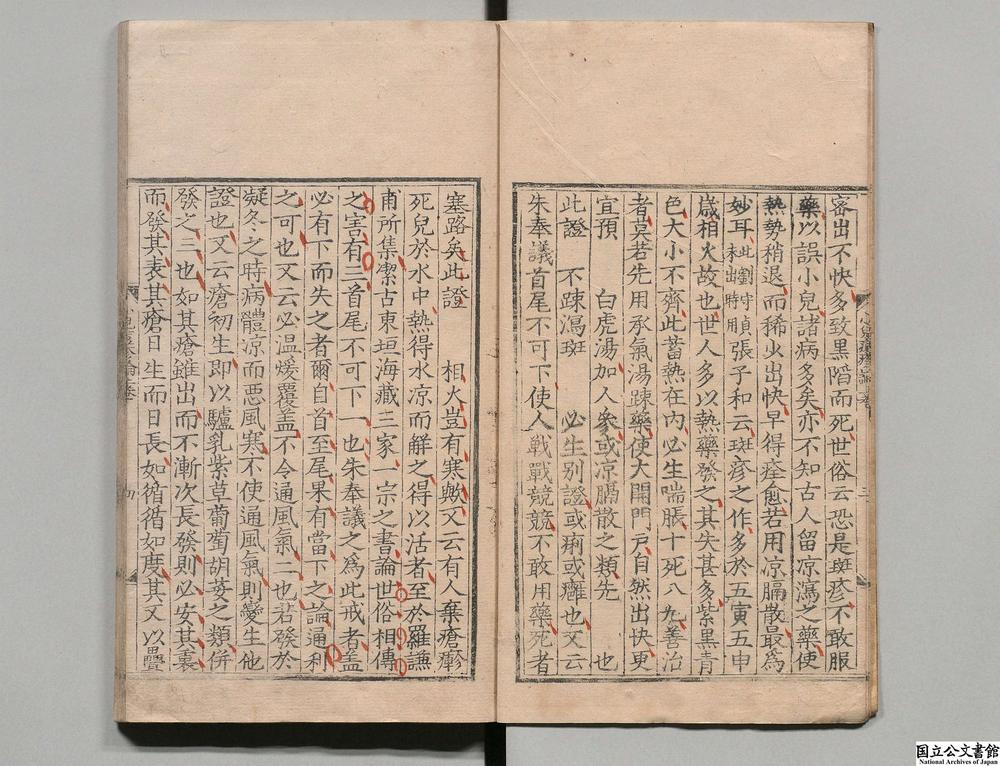 密出不快多致黑陷而死世俗云恐是斑疹不敢服
藥以誤小兒諸病多矣亦不知古人留凉瀉之藥使
熱勢稍退而稀少出快早得痊愈若用凉膈散最爲
妙耳此劉守真未出時用須張子和云斑疹之作多於五寅五申
歲相火故也世人多以熱藥發之其失甚多紫黑青
色大小不齊此蓄熱在內必生喘脹十死八九善治
者莫若先用承氣湯踈藥使大開門戶自然出快更
宜預 白虎湯加人參或凉膈散之類先 也
此證 不踈瀉斑 必生別證或痢或癰也又云
朱奉議首尾不可下使人戰戰競競不敢用藥死者
塞路矣此證 相火豈有寒歟又云有人棄瘡疹
死兒於水中熱得水凉而解之得以活者至於羅謙
甫所集潔古東垣海藏三家一宗之書論世俗相傳
之害有三首尾不可下一也朱奉議之爲此戒者蓋
必有下而失之者爾自首至尾果有當下之論通利
之可也又云必温煖覆盖不令通風氣二也若發於
凝冬之時病體凉而悪風寒不使通風氣則變生他
證也又云瘡初生即以驢乳紫草葡萄胡荽之類併
發之三也如其瘡雖出而不漸次長發則必安其裏
而發其表其瘡日生而日長如循循如度其又以疊
三
四
国立公文書館
National Archives of Japan